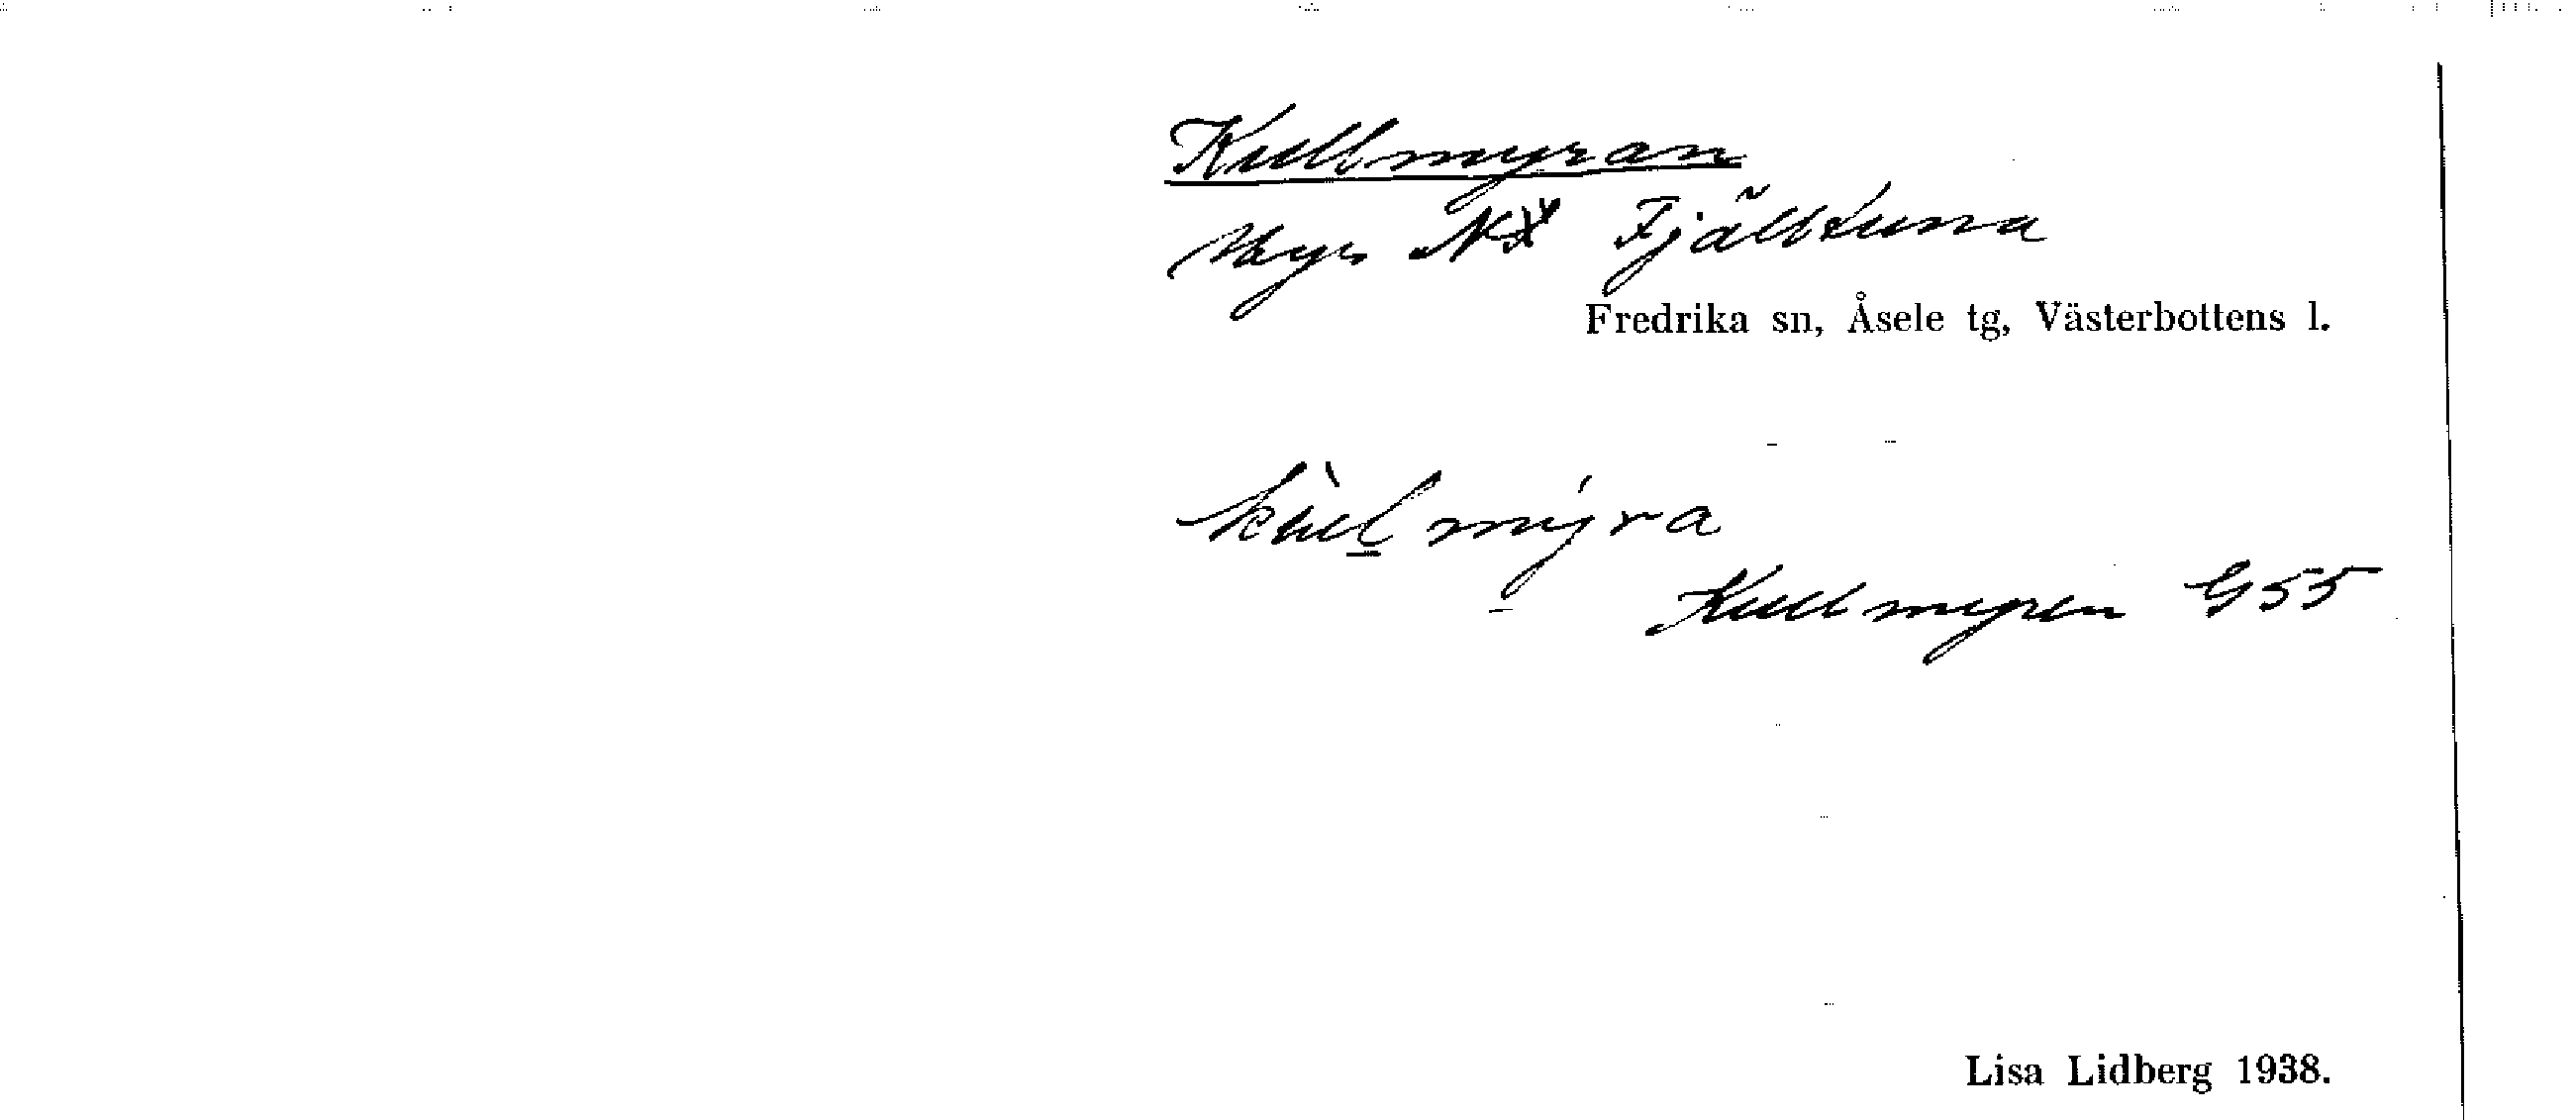 Kullmyran
Myr NV Fjälltuna
Fredrika sn, Åsele tg, Västerbottens l.
kùl mýra
Kullmyren G55
Lisa Lidberg 1938.